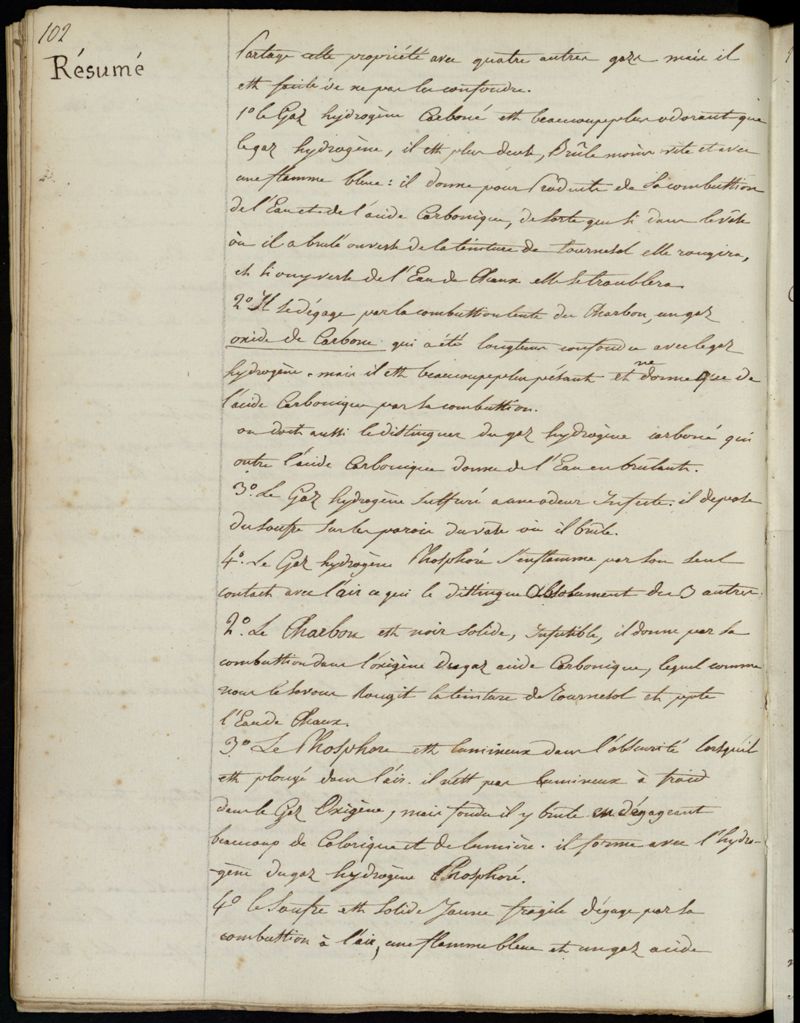 102
Résumé
Partage cette propriété avec quatre autres gazs mais il
est facile de ne pas les confondre.
1º le Gaz hydrogène Carboné est beaucoup plus odorant que
le gaz hydrogène, il est plus dense, Brûle moins vite et avec
une flamme bleue : il donne pour Produits de sa combustion
de l'Eau et de l'acide Carbonique, de sorte que si dans le vase
où il a brulé on verse de la teinture de tournesol elle rougira,
et si on y verse de l'Eau de Chaux elle se troublera
2º Il se dégage par la combustion lente du Charbon, un gaz
oxide de Carbone qui a été longtems confondu avec le gaz
hydrogène. mais il est beaucoup plus pésant et ne donne que de
l'acide Carbonique par sa combustion.
on doit aussi le distinguer du gaz hydrogène carboné qui
outre l'acide Carbonique donne de l'Eau en brûlant.
3º Le Gaz hydrogène sulfuré a une odeur Infecte. il depose
du soufre sur les parois du vase où il brule.
4º. Le Gaz hydrogène Phosphoré s'enflamme par son seul
contact avec l'air ce qui le distingue Absolument des 3 autres.
2º. Le Charbon est noir solide, Infusible, il donne par sa
combustion dans l'oxigène du gaz acide Carbonique, lequel comme
nous le savons Rougit la teinture de Tournesol et ppte
l'Eau de Chaux.
3º. Le Phosphore est lumineux dans l'obscurité lorsqu'il
est plongé dans l'air. il n'est pas lumineux à froid
dans le Gaz Oxigène, mais fondu il y brule en dégageant
beaucoup de Calorique et de lumière. il forme avec l'hydro-
-gène du gaz hydrogène Phosphoré.
4º le Soufre est solide Jaune fragile dégage par sa
combustion à l'air, une flamme bleue et un gaz acide